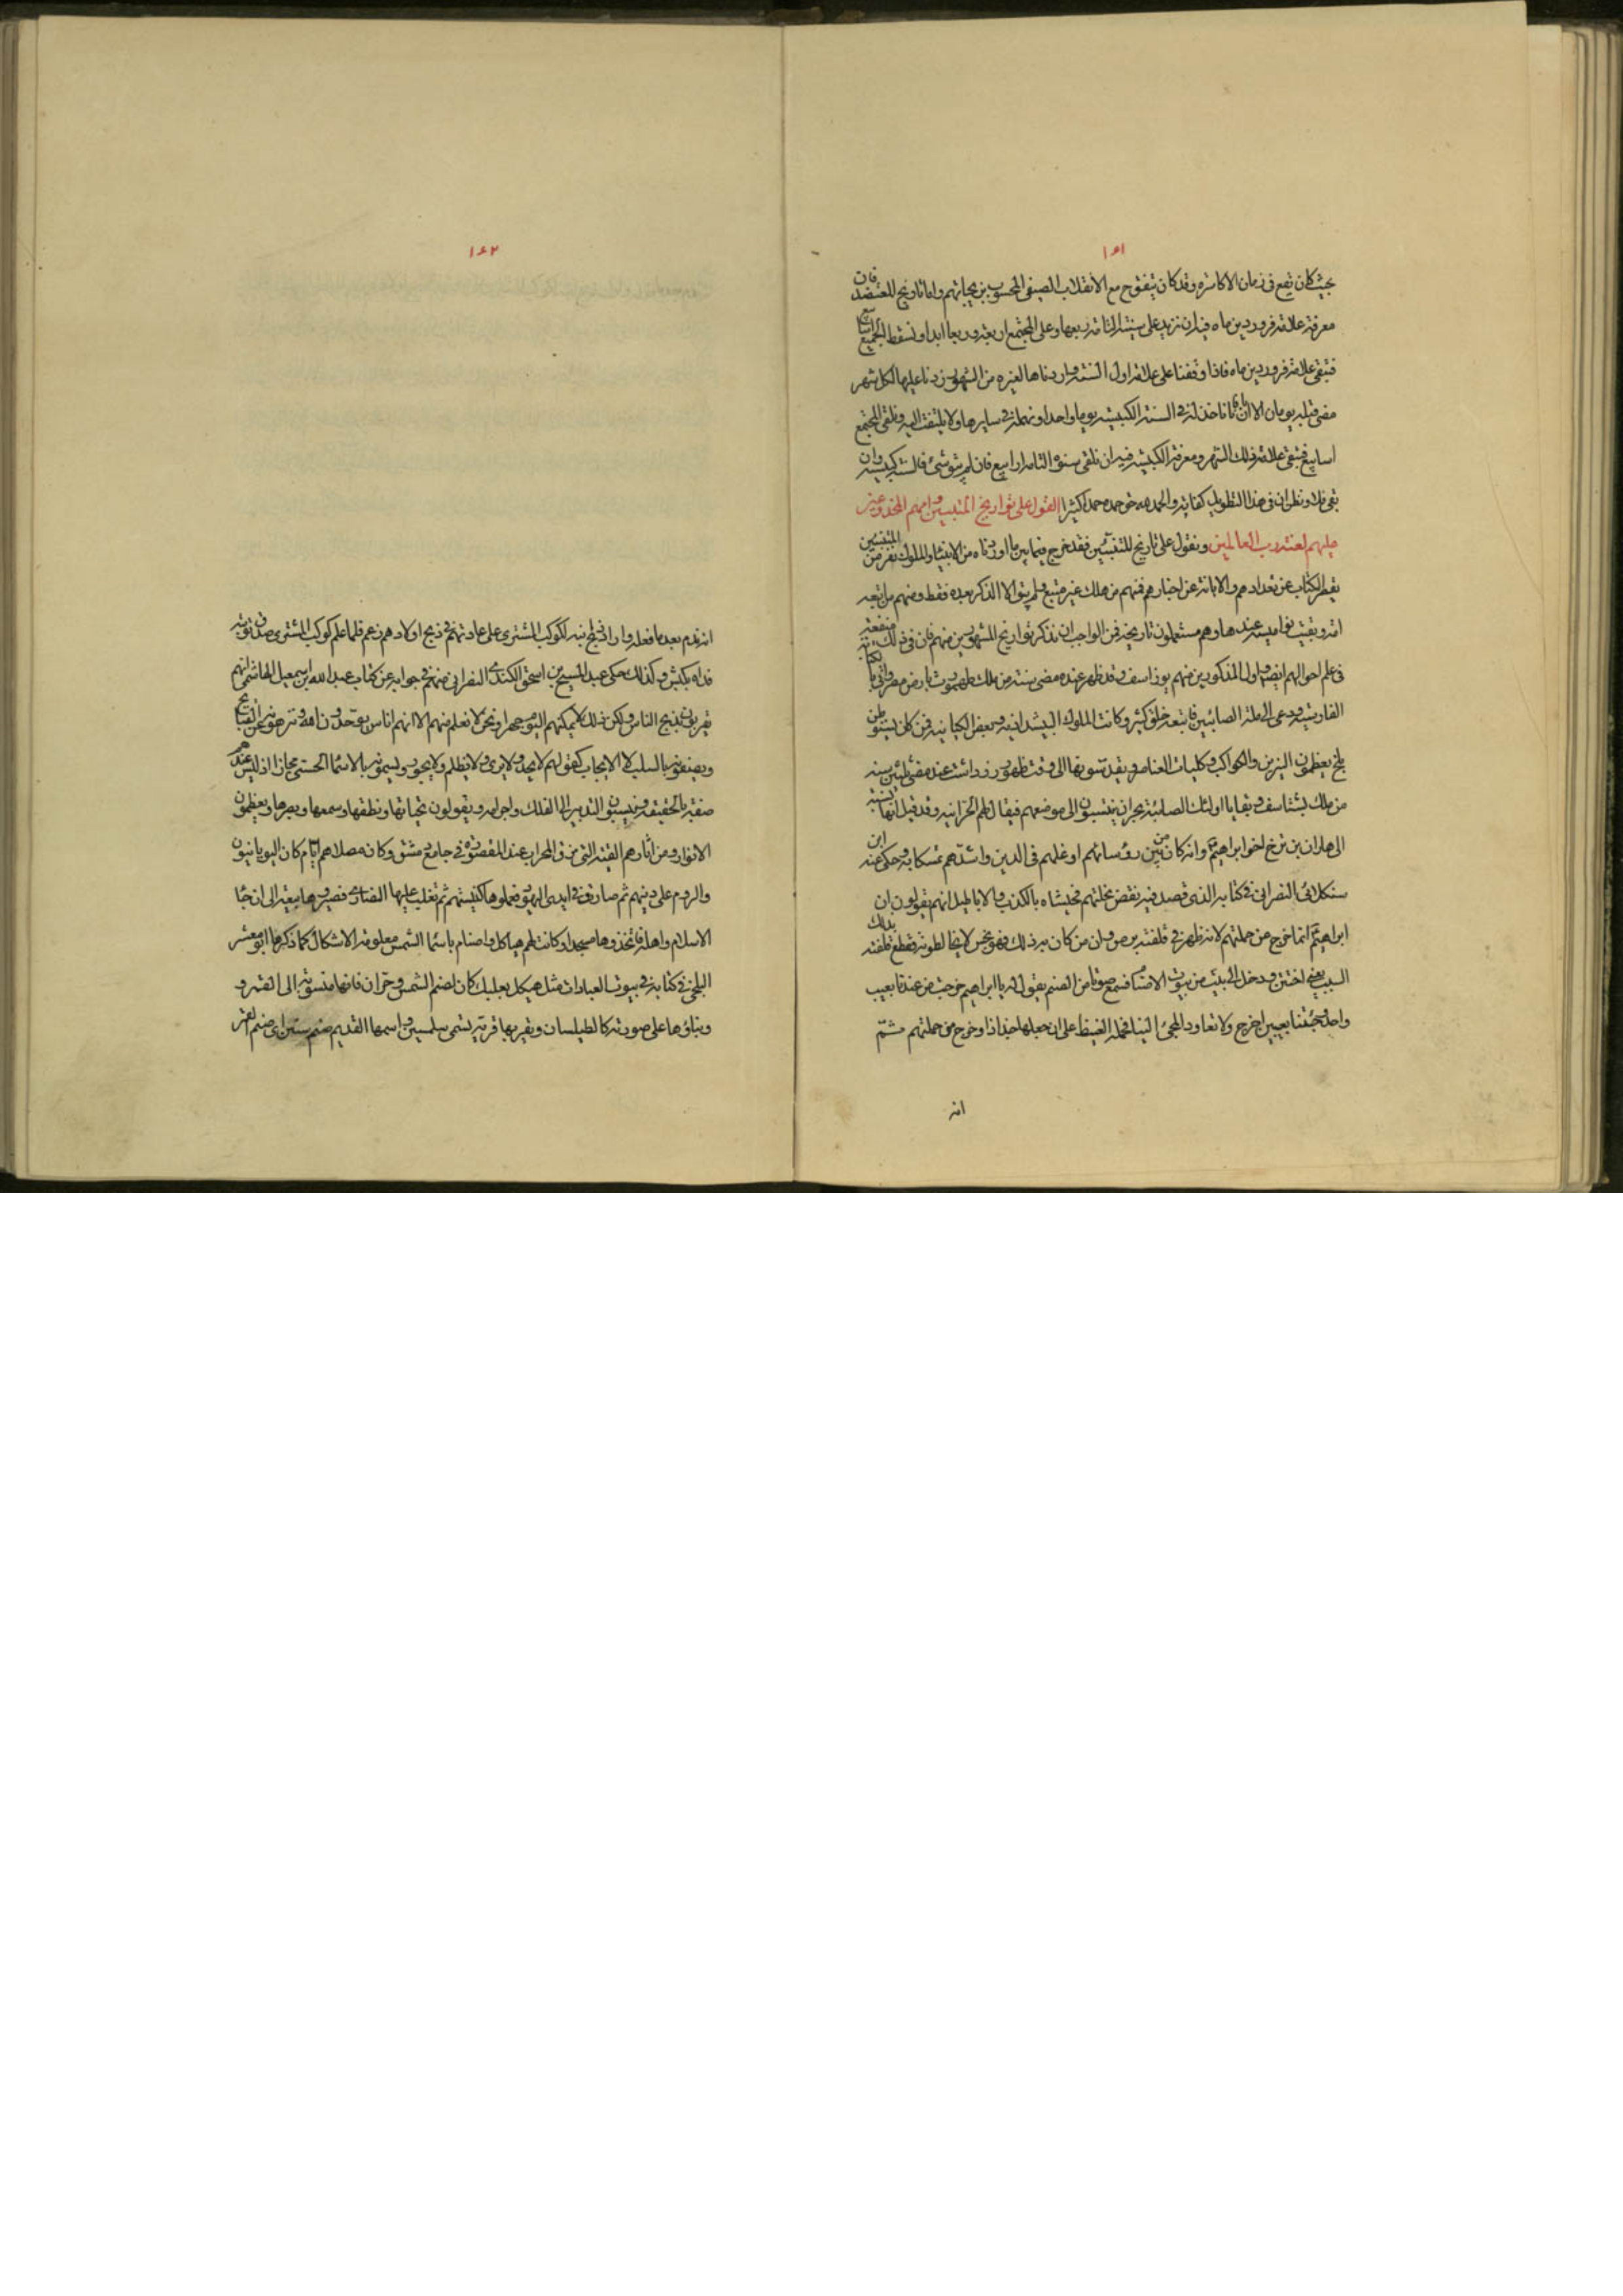 ١٤١
بحيث كان تقع في زمان الاكاسره وقد كان يتفق ح مع الانقلاب الصيفي المحسوب بزيجاتهم واما تاريخ المعتضد فان
معرفة علامة فروردين ماه فيه ان نزيد على سنيه التامة ربعها وعلى المجتمع اربعة وربعا ابدا ونسقط الجميع اسابيع
فتبقى علامة فروردين ماه فاذا وقفنا على علامة اول السنة واردناها لغيره من الشهور زدنا عليها لكل شهر
مضى قبله يومان الا ان ناخذ له في السنة الكبيسة يوما واحدا ونهمله في سايرها ولا يلتفت اليه ونلقى المجتمع
اسابيع فتبقى علامة ذلك الشهر ومعرفة الكبيسة فيه ان نلقى سنوه التامة ارابيع فان لم يبق شئ فالسنة كبيسة وان
بقى فلا ونظن ان في هذا التطويل كفاية والحمد لله حق حمده حمدا كثيرا القول على تواريخ المتنبيين واممهم المخدوعين
عليهم لعنة رب العالمين ونقول على تاريخ المتنبئين فقد خرج فيما بين ما اوردناه من الانبياء والملوك نفر من المتنبئين
يقصر الكتاب عن تعدادهم والابانة عن اخبارهم فمنهم من هلك غير متبع ولم يبق الا الذكر بعده فقط ومنهم من اتبعه
امة وبقيت نواميسه عندها وهم مستعملون تاريخه فمن الواجب ان نذكر تواريخ المشهورين منهم فان في ذلك منفعة
في علم احوالهم ايضا واول المذكورين منهم يوذاسف وقد ظهر عند مضى سنة من ملك طهمورث بارض مصر واتى بالكتابة
الفارسية ودعى الى ملة الصابئين فاتبعه خلق كثير وكانت الملوك البيشدانية وبعض الكيانية ممن كان يستوطن
بلخ يعظمون النيرين والكواكب وكليات العناصر ويقدسونها الى وقت ظهور زرادشت عند مضى ثلثين سنة
من ملك بشتاسف وبقايا اولئك الصابئة بحران ينتسبون الى موضعهم فيقال لهم الحرانية وقد قيل انها نسبة
الى هاران بن ترح اخو ابراهيم وانه كان من بين رؤسائهم اوغلهم في الدين واشدهم تمسكا به وحكى عنه ابن
سنكلائى النصراني في كتابه الذي قصد فيه نقض نحلتهم فحشاه بالكذب والاباطيل انهم يقولون ان
ابراهيم انما خرج عن جملتهم لانه ظهر في قلفته برص وان من كان به ذلك فهو نجس لا يخالطونه فقطع قلفته بذلك
السبب يعني اختتن ودخل الى بيت من بيوت الاصنام فسمع صوتا من الصنم يقول له يا ابراهيم خرجت من عندنا بعيب
واحد وجئتنا بعيبين اخرج ولا تعاود المجئ الينا فحمله الغيظ على ان جعلها جذاذا وخرج من جملتهم ثم
انه
١٤٢
انه ندم بعد ما فعله واراد ذبح ابنه لكوكب المشترى على عادتهم في ذبح اولادهم زعم فلما علم كوكب المشترى صدق توبته
فداه بكبش وكذلك حكى عبد المسيح بن اسحق الكندى النصراني عنهم في جوابه عن كتاب عبد الله بن اسمعيل الهاشمى انهم
يعرفون بذبح الناس ولكن ذلك لا يمكنهم اليوم جهرا ونحن لا نعلم منهم الا انهم اناس يوحدون الله وينزهونه عن القبائح
ويصفونه بالسلب لا الايجاب كقولهم لا يحد ولا يرى ولا يظلم ولا يجور ويسمونه بالاسماء الحسنى مجازا اذ ليس عندهم
صفة بالحقيقة وينسبون التدبير الى الفلك واجرامه ويقولون بحياتها ونطقها وسمعها وبصرها ويعظمون
الانوار ومن اثارهم القبة التي فوق المحراب عند المقصورة في جامع دمشق وكان مصلاهم ايام كان اليونانيون
والروم على دينهم ثم صارت في ايدى اليهود فعملوها كنيستهم ثم تغلب عليها النصارى فصيروها بيعة الى ان جاء
الاسلام واهله فاتخذوها مسجدا وكانت لهم هياكل واصنام باسماء الشمس معلومة الاشكال كما ذكرها ابو معشر
البلخى في كتابه في بيوت العبادات مثل هيكل بعلبك كان لصنم الشمس وحران فانها منسوبة الى القمر و
وبناؤها على صورته كالطيلسان وبقربها قرية تسمى سلمسين واسمها القديم صنم سين اى صنم القمر